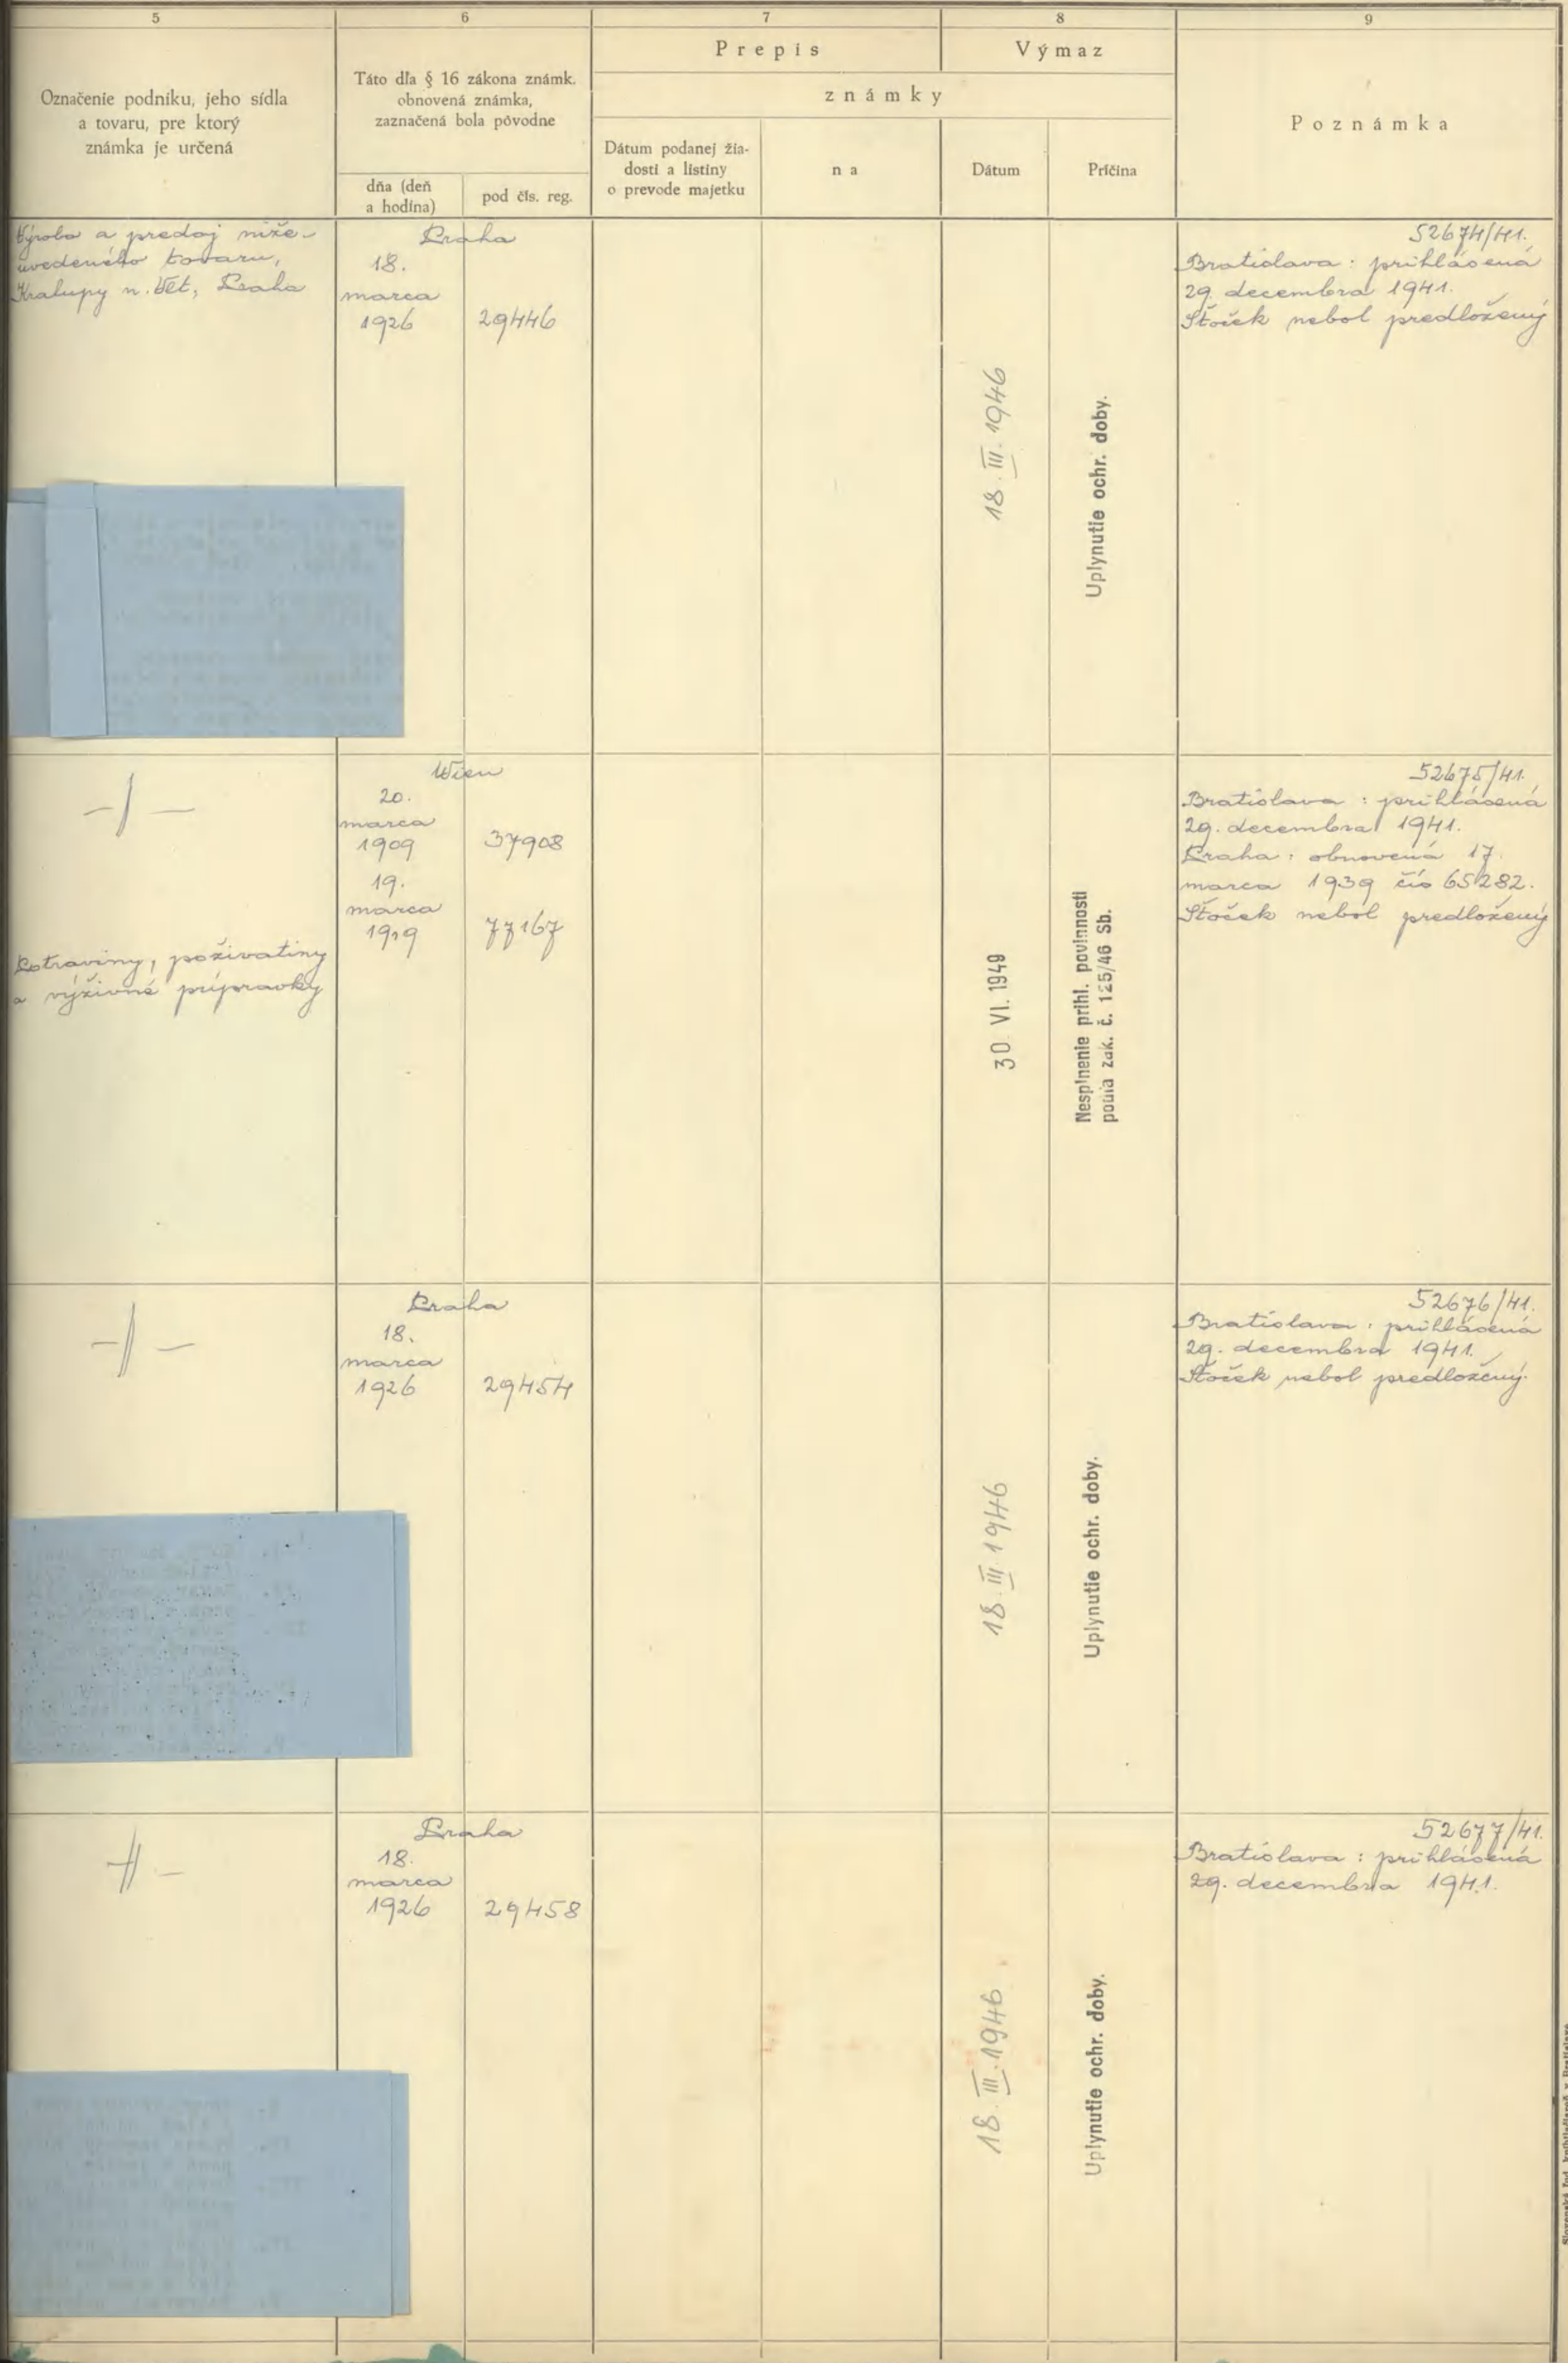 5
6
7
8
9
Označenie podniku, jeho sídla
a tovaru, pre ktorý
známka je určená
Táto dľa § 16 zákona známk.
obnovená známka,
zaznačená bola pôvodne
dňa (deň
a hodina)
pod čís. reg.
Prepis
Výmaz
známky
Dátum podanej žia-
dosti a listiny
o prevode majetku
na
Dátum
Príčina
Poznámka
Výroba a predaj niže-
uvedeného tovaru,
Kralupy n. Vlt, Praha
Praha
18.
marca
1926 29446
18. III. 1946
Uplynutie ochr. doby.
52674/41.
Bratislava: prihlásená
29. decembra 1941.
Štoček nebol predložený
-/-
Potraviny, poživatiny
a výživné prípravky
Wien
20.
marca
1909 37908
19.
marca
1919 77167
30 VI. 1949
Nesplnenie prihl. povinnosti
podľa zák. č. 125/46 Sb.
52675/41.
Bratislava: prihlásená
29. decembra 1941.
Praha: obnovená 17.
marca 1939 čís 65282.
Štoček nebol predložený
-//-
Praha
18.
marca
1926 29454
18. III 1946
Uplynutie ochr. doby.
52676/41.
Bratislava: prihlásená
29. decembra 1941.
Štoček nebol predložený.
-//-
Praha
18.
marca
1926 29458
18. III. 1946
Uplynutie ochr. doby.
52677/41.
Bratislava: prihlásená
29. decembra 1941.